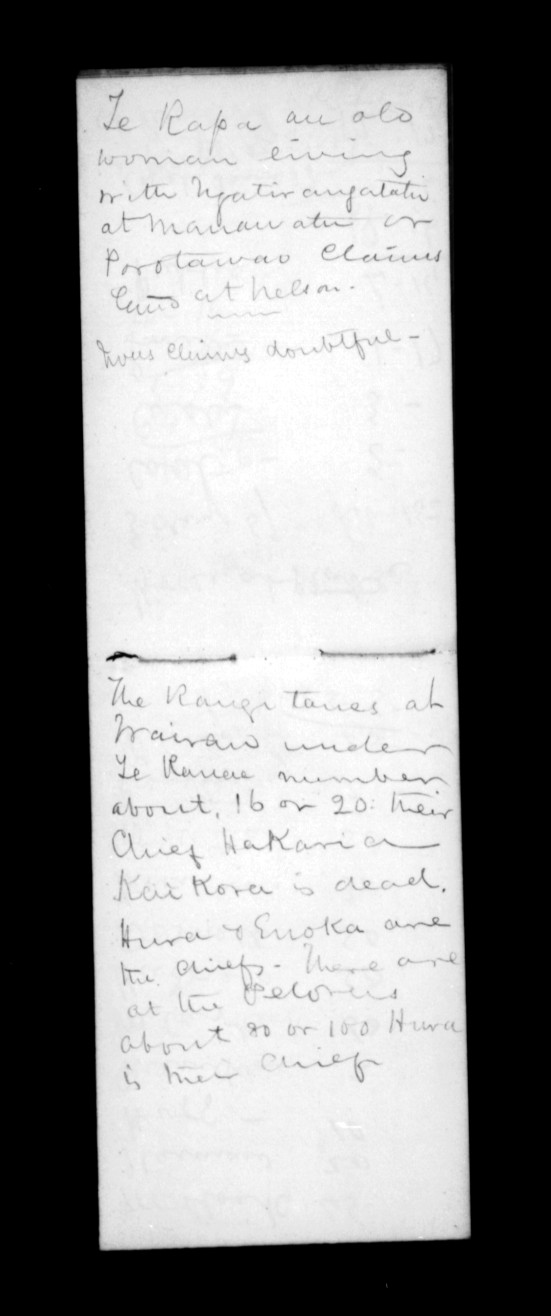 Te Rapa an old
woman living
with Ngatirangatahi
at Manawatu or
Porotawao Claims
Land at Nelson.
claims doubtful -
The Rangitanes at
Wairau under
Te Kanae number
about. 16 or 20: their
Chief Hakaria
Kaikora is dead.
Hura & Enoka are
the chiefs - There are
at the Pelorus
about 80 or 100 Hura
is their Chief